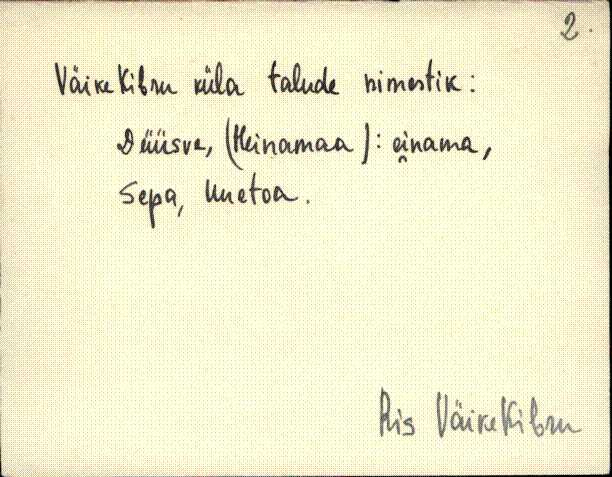 2.
VäikeKibru küla talude nimestik:
Düüsve, (Heinamaa): einama,
Sepa, Uuetoa.
Ris VäikeKibru